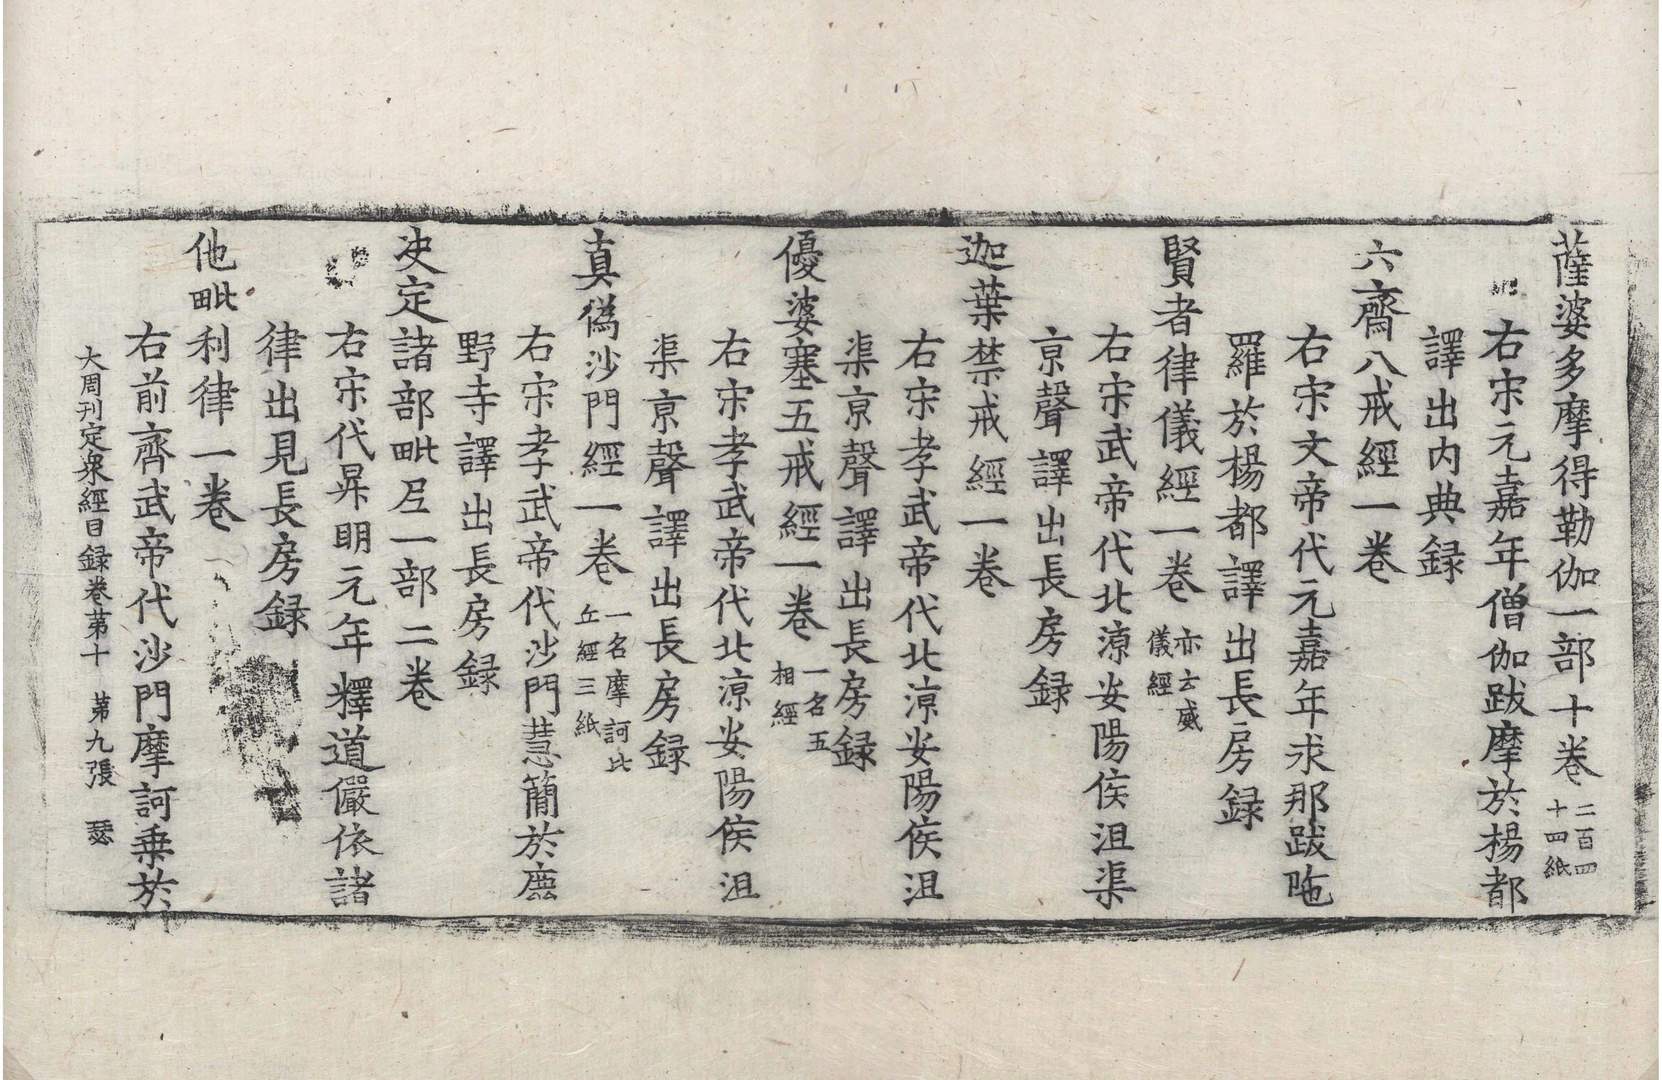 薩婆多摩得勒伽一部十卷二百四十四紙
右宋元嘉年僧伽跋摩於楊都
譯出内典録
六齋八戒經一卷
右宋文帝代元嘉年求那跋陁
羅於楊都譯出長房録
賢者律儀經一卷亦云威儀經
右宋武帝代北涼安陽侯沮渠
京聲譯出長房録
迦葉禁戒經一卷
右宋孝武帝代北涼安陽侯沮
渠京聲譯出長房録
優婆塞五戒經一卷一名五相經
右宋孝武帝代北涼安陽侯沮
渠京聲譯出長房録
真偽沙門經一卷一名摩訶比丘經三紙
右宋孝武帝代沙門慧簡於鹿
野寺譯出長房録
决定諸部毗尼一部二卷
右宋代昇明元年釋道儼依諸
律出見長房録
他毗利律一卷
右前齊武帝代沙門摩訶乗於
大周刊定衆經目録卷第十 第九張 瑟